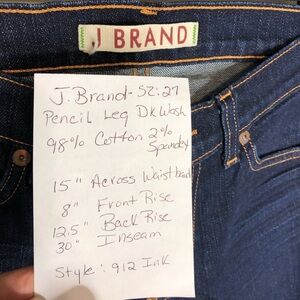 J BRAND
J. Brand - SZ: 27
Pencil Leg Dk Wash
98% Cotton 2% Spandex
15" Across Waistband
8" Front Rise
12.5" Back Rise
30" Inseam
Style: 912 Ink